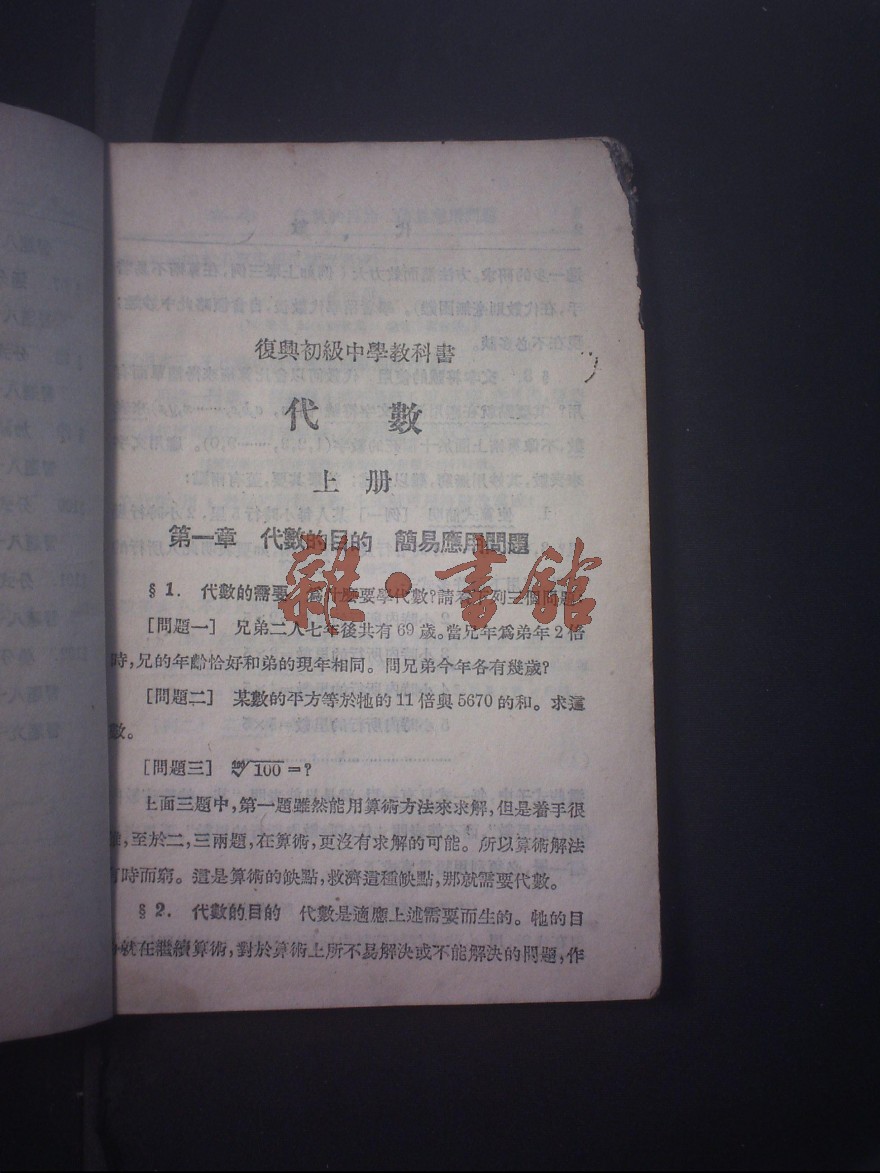 復興初級中學教科書
代 數
上 册
第一章 代數的目的 簡易應用問題
§1. 代數的需要 爲什麼要學代數?請看下列三個問題.
[問題一] 兄弟二人七年後共有 69 歲。當兄年爲弟年 2 倍
時,兄的年齡恰好和弟的現年相同。問兄弟今年各有幾歲?
[問題二] 某數的平方等於牠的 11 倍與 5670 的和。求這
數。
[問題三] 100 =?
上面三題中,第一題雖然能用算術方法來求解,但是着手很
,至於二,三兩題,在算術,更沒有求解的可能。所以算術解法
有時而窮。這是算術的缺點,救濟這種缺點,那就需要代數。
§2. 代數的目的 代數是適應上述需要而生的。牠的目
就在繼續算術,對於算術上所不易解決或不能解決的問題,作
雜·書館